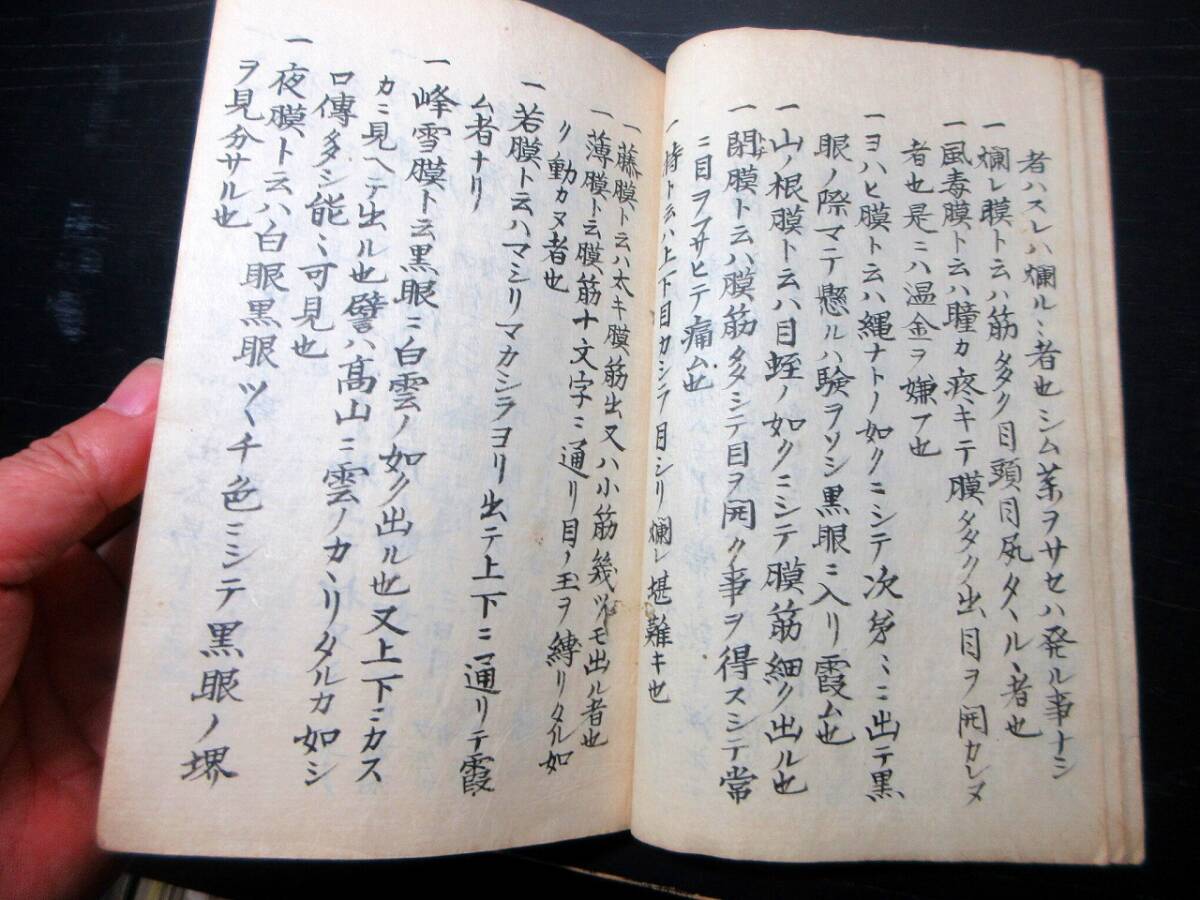 者ハスレハ爛ルヽ者也シム薬ヲサセハ発ル事ナシ
一爛レ膜ト云ハ筋タタク目頭目尻タヽルヽ者也
一風毒膜ト云ハ瞳カ疼ミキテ膜タタク出目ヲ開カレヌ
者也是ニハ温金ヲ嫌フ也
一ヨハヒ膜ト云ハ縄ナトノ如クニシテ次第ミニ出テ黒
眼ノ際マテ懸ルハ験ヲソシ黒眼ニ入リ霞ム也
一山ノ根膜ト云ハ目蛭ノ如クニシテ膜筋細ク出ル也
一閉膜ト云ハ膜筋タタシテ目ヲ開ク事ヲ得スシテ常
ニ目ヲフサヒテ痛ム也
一 ト云ハ上下目カシラ目シリ爛レ堪難キ也
一藤膜ト云ハ太キ膜筋出又ハ小筋幾ツモ出ル者也
一薄膜ト云膜筋十文字ニ通リ目ノ玉ヲ縛リタル如
ク動カヌ者也
一若膜ト云ハマシリマカシラヨリ出テ上下ニ通リテ霞
ム者ナリ
一峰雪膜ト云黒眼ニ白雲ノ如ク出ル也又上下ニカス
カニ見ヘテ出ル也譬ハ高山ニ雲ノカヽリタルカ如シ
口傳多シ能ミ可見也
一夜膜ト云ハ白眼黒眼ツヽチ色ミシテ黒眼ノ堺
ヲ見分サル也